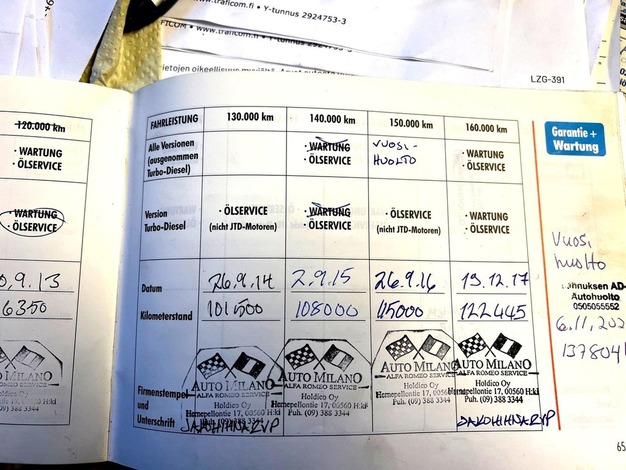 www.traficom.fi • Y-tunnus 2924753-3
www.traficom.fi • Y-tunnus 2924753-3
LZG-391
120.000 km
· WARTUNG
· ÖLSERVICE
· WARTUNG
· ÖLSERVICE
9.13
6350
FAHRLEISTUNG 130.000 km 140.000 km 150.000 km 160.000 km
Alle Versionen
(ausgenommen
Turbo-Diesel)
· WARTUNG
· ÖLSERVICE
VUOSI-
HUOLTO
· WARTUNG
· ÖLSERVICE
Version
Turbo-Diesel
· ÖLSERVICE
(nicht JTD-Motoren)
· WARTUNG
· ÖLSERVICE
· ÖLSERVICE
(nicht JTD-Motoren)
· WARTUNG
· ÖLSERVICE
Datum 26.9.14 2.9.15 26.9.16 19.12.17
Kilometerstand 101500 108000 115000 122445
Firmenstempel
und
Unterschrift
AUTO MILANO
ALFA ROMEO SERVICE
Holdico Oy
Hernepellontie 17, 00560 H:ki
Puh. (09) 388 3344
AUTO MILANO
ALFA ROMEO SERVICE
Holdico Oy
Hernepellontie 17, 00560 H:ki
Puh. (09) 388 3344
AUTO MILANO
ALFA ROMEO SERVICE
Holdico Oy
Hernepellontie 17, 00560 H:ki
Puh. (09) 388 3344
AUTO MILANO
ALFA ROMEO SERVICE
Holdico Oy
Hernepellontie 17, 00560 H:ki
Puh. (09) 388 3344
Garantie +
Wartung
Vuosi
huolto
AD-
Autohuolto
0505055552
6.11.202
137804
65